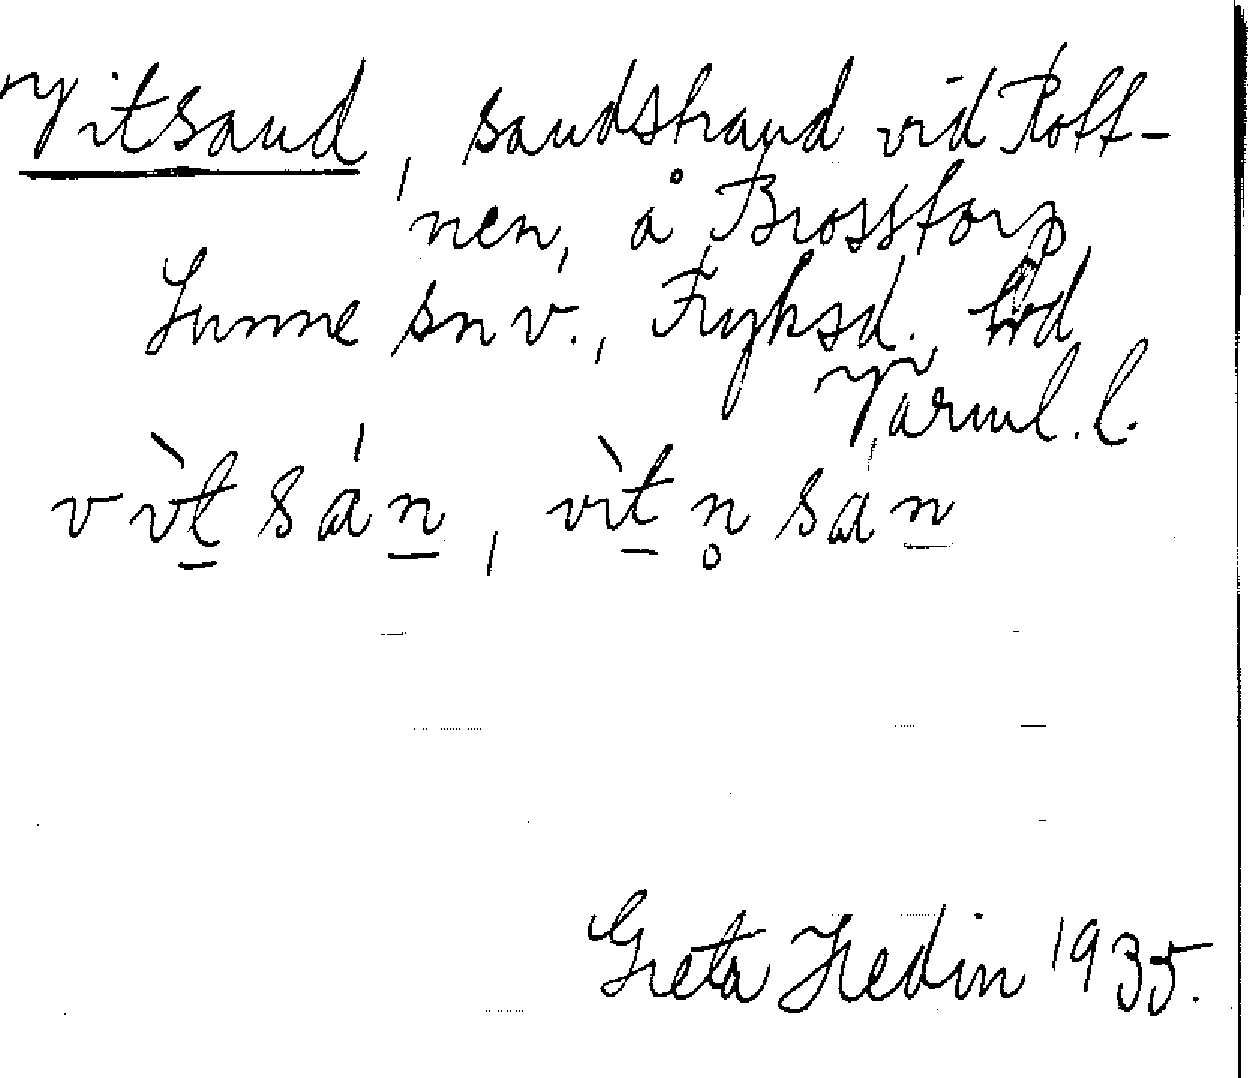 Vitsand, sandstrand vid Rott-
nen, å Brosstorp,
Sunne sn v., Fryksd. hd
Värml. l.
vìt sán, vìt n̥ san
Greta Hedin 1935.